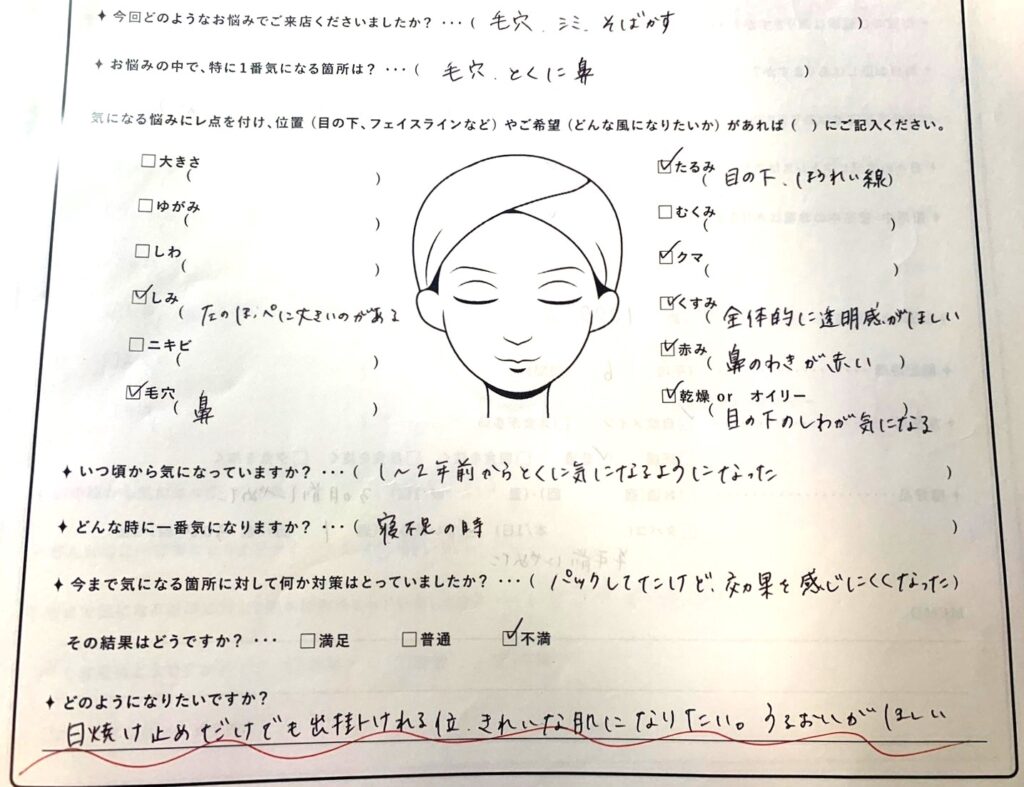 ✦ 今回どのようなお悩みでご来店くださいましたか？ ･･･（ 毛穴、シミ、そばかす ）
✦ お悩みの中で、特に1番気になる箇所は？ ･･･（ 毛穴、とくに鼻 ）
気になる悩みにレ点を付け、位置（目の下、フェイスラインなど）やご希望（どんな風になりたいか）があれば（ ）にご記入ください。
□大きさ
（ ）
□ゆがみ
（ ）
□しわ
（ ）
☑しみ
（ 左のほっぺに大きいのがある
□ニキビ
（ ）
☑毛穴
（ 鼻 ）
☑たるみ
（ 目の下、ほうれい線）
□むくみ
（ ）
☑クマ
（ ）
☑くすみ
（ 全体的に透明感がほしい
☑赤み
（ 鼻のわきが赤い ）
☑乾燥 or オイリー
（ 目の下のしわが気になる ）
✦ いつ頃から気になっていますか？ ･･･（ 1〜2年前からとくに気になるようになった ）
✦ どんな時に一番気になりますか？ ･･･（ 寝不足の時 ）
✦ 今まで気になる箇所に対して何か対策はとっていましたか？ ･･･（ パックしてたけど、効果を感じにくくなった ）
その結果はどうですか？ ･･･ □満足 □普通 ☑不満
✦ どのようになりたいですか？
日焼け止めだけでも出掛けれる位、きれいな肌になりたい。うるおいがほしい